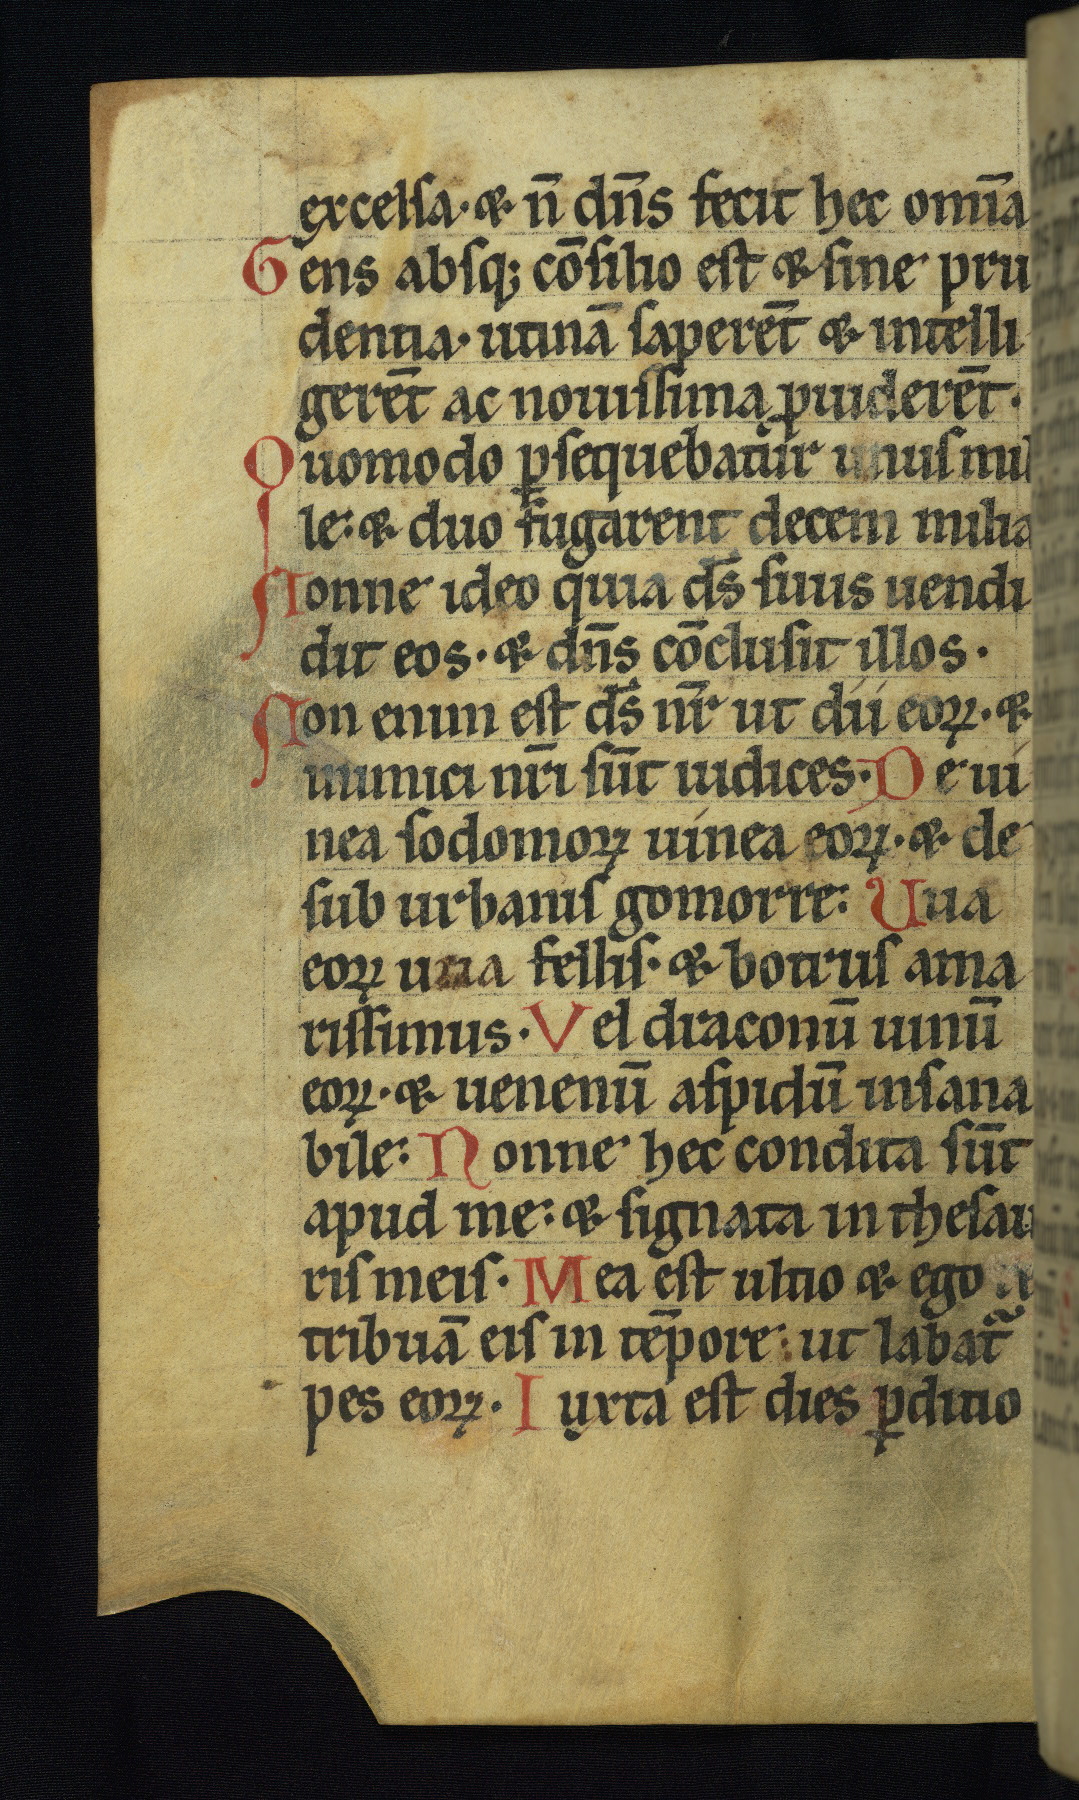 excelsa· ⁊ n̄ dn̄s fecit hec om̄ia
Gens absq; cōsilio est ⁊ sine pru
dentia· utinā saperēt ⁊ intelli
gerēt ac nouissima ꝓuiderēt·
Quomodo ꝑsequebatur unus mil
le: ⁊ duo fugarent decem milia
Nonne ideo quia ds̄ suus uendi
dit eos· ⁊ dn̄s cōclusit illos·
Non enim est ds̄ nr̄ ut dii eoꝝ· ⁊
inimici nr̄i sūt iudices· De ui
nea sodomoꝝ uinea eoꝝ· ⁊ de
sub urbanis gomorre: Uua
eoꝝ uua fellis· ⁊ botrus ama
rissimus· Vel draconū uinū
eoꝝ· ⁊ uenenū aspidū insana
bile: Nonne hec condita sūt
apud me: ⁊ signata in thesau
ris meis· Mea est ultio ⁊ ego
tribuā eis in tēpore: ut labat᷑
pes eoꝝ· Iuxta est dies ꝑditio